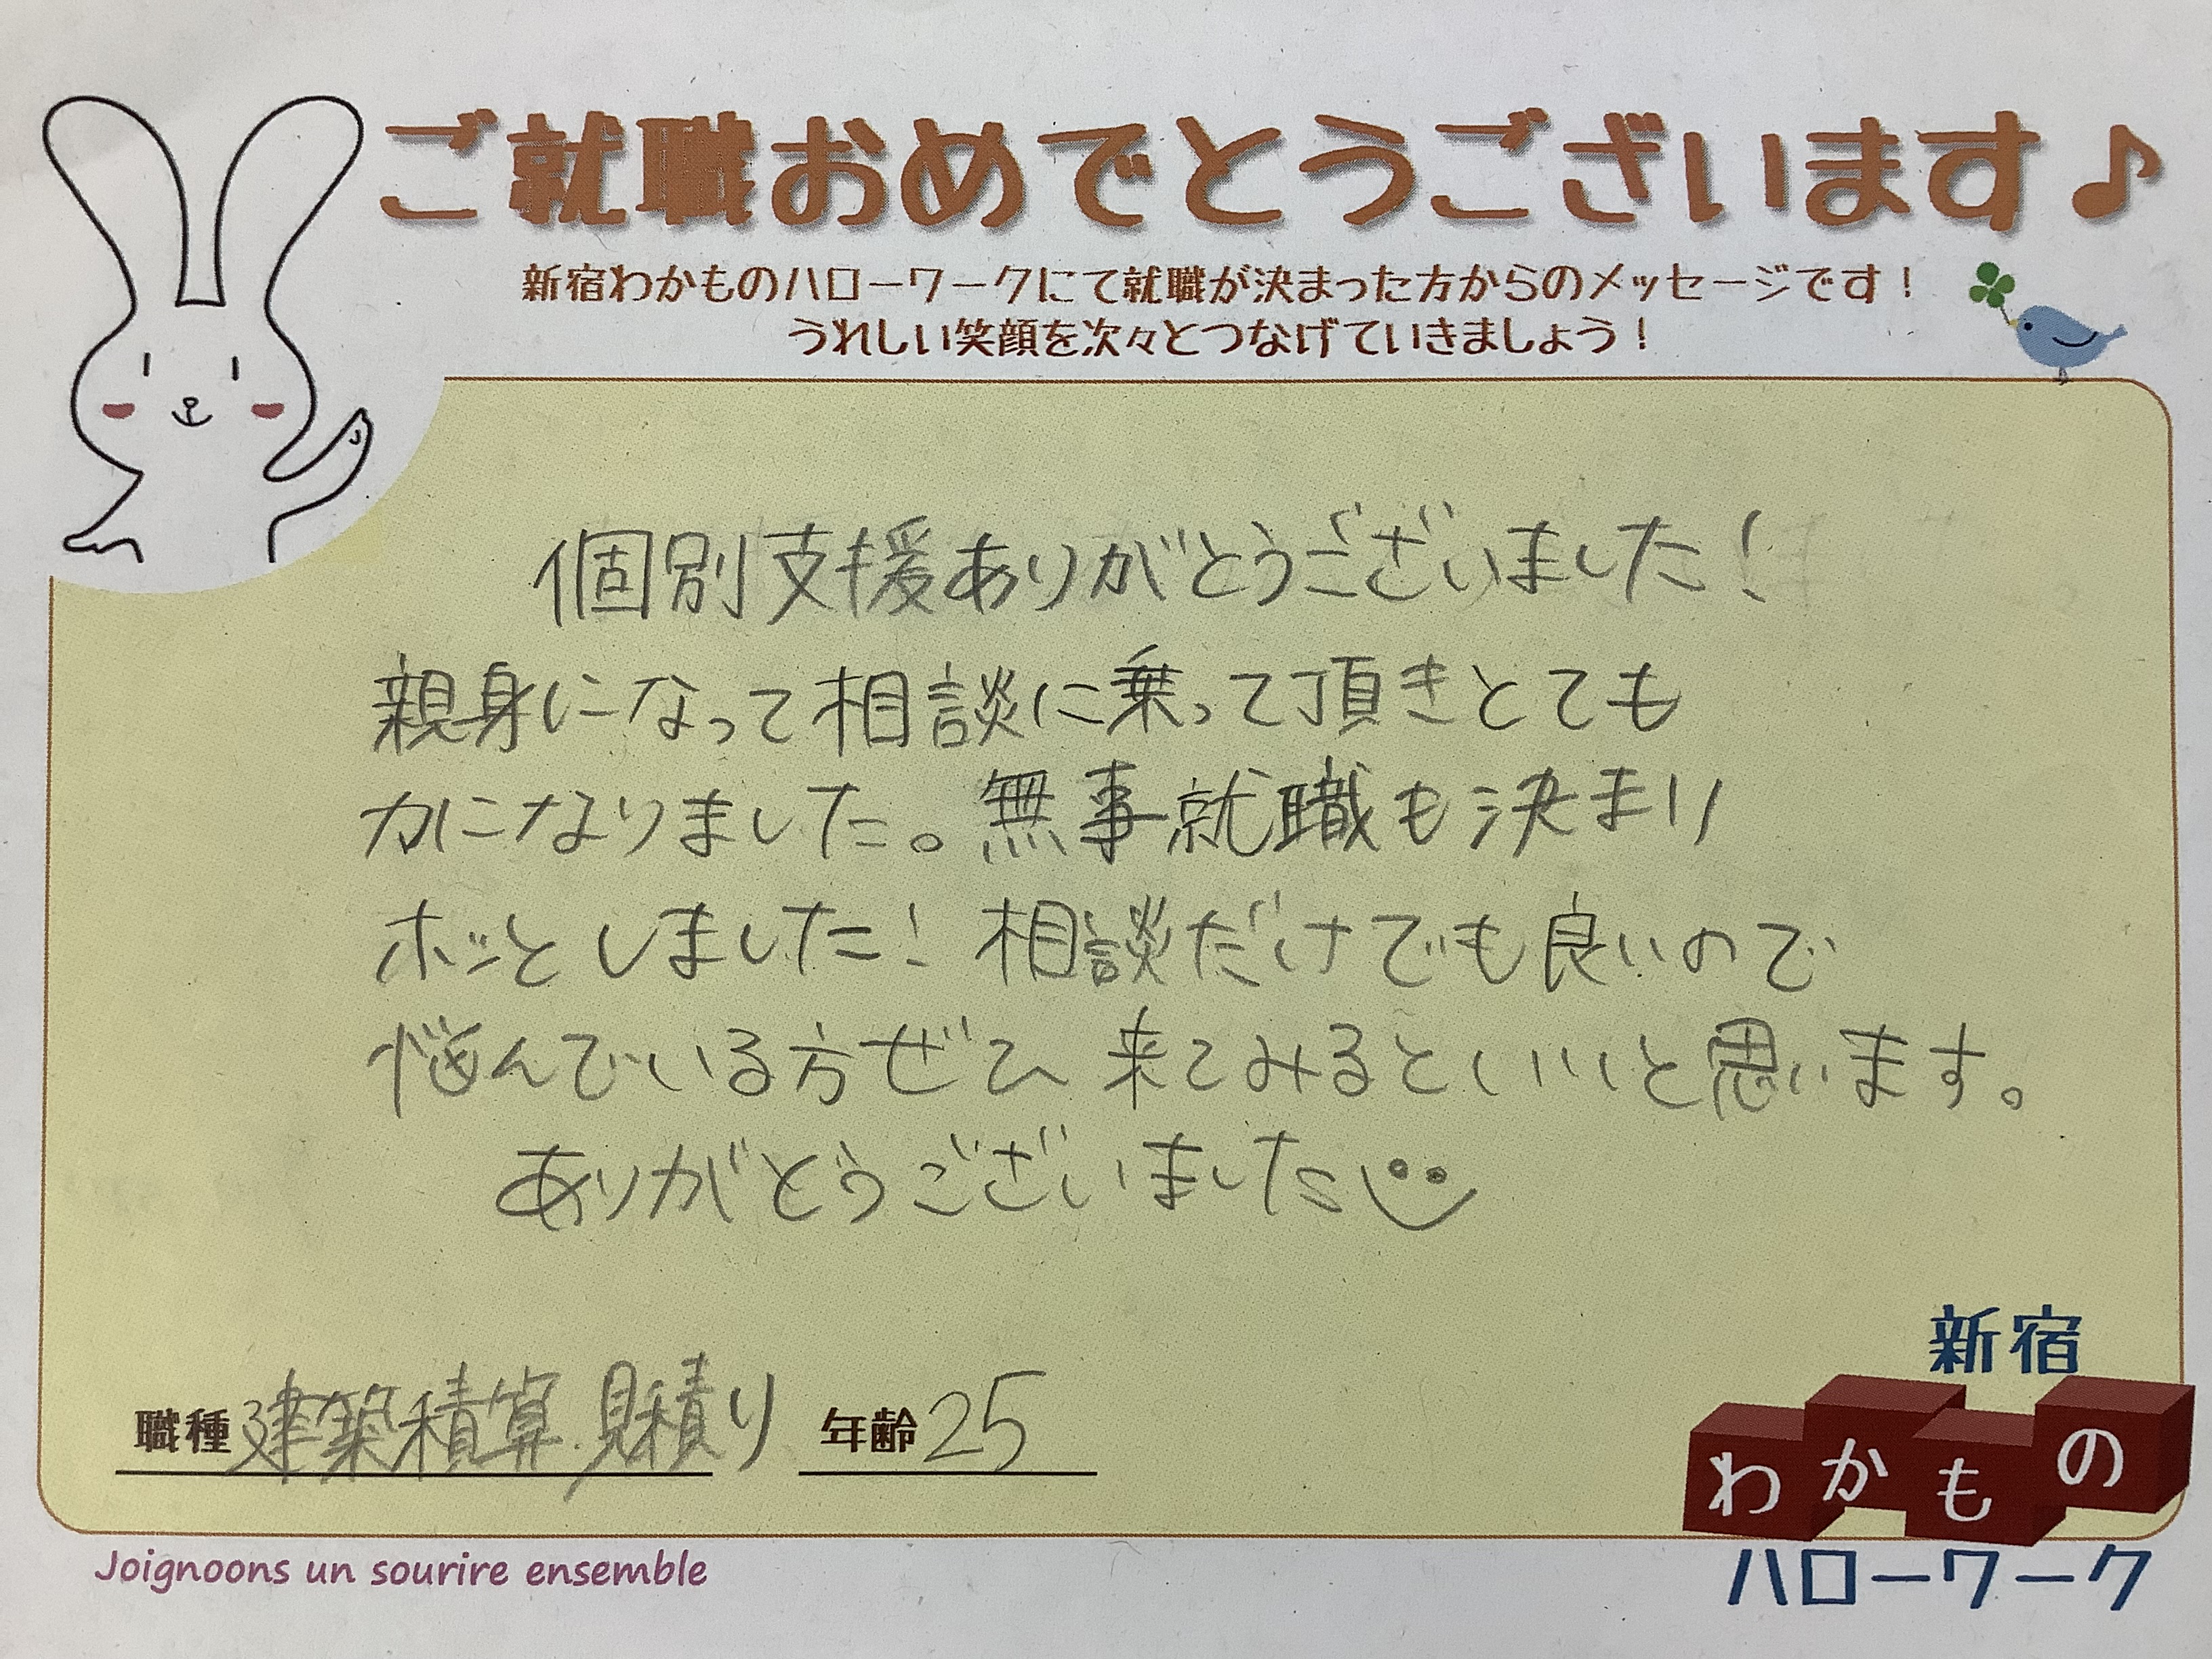 ご就職おめでとうございます♪
新宿わかものハローワークにて就職が決まった方からのメッセージです！
うれしい笑顔を次々とつなげていきましょう！
個別支援ありがとうございました！
親身になって相談に乗って頂きとても
力になりました。無事就職も決まり
ホッとしました！相談だけでも良いので
悩んでいる方ぜひ来てみるといいと思います。
ありがとうございました
職種 建築積算.見積り 年齢 25
新宿
わかもの
ハローワーク
Joignoons un sourire ensemble